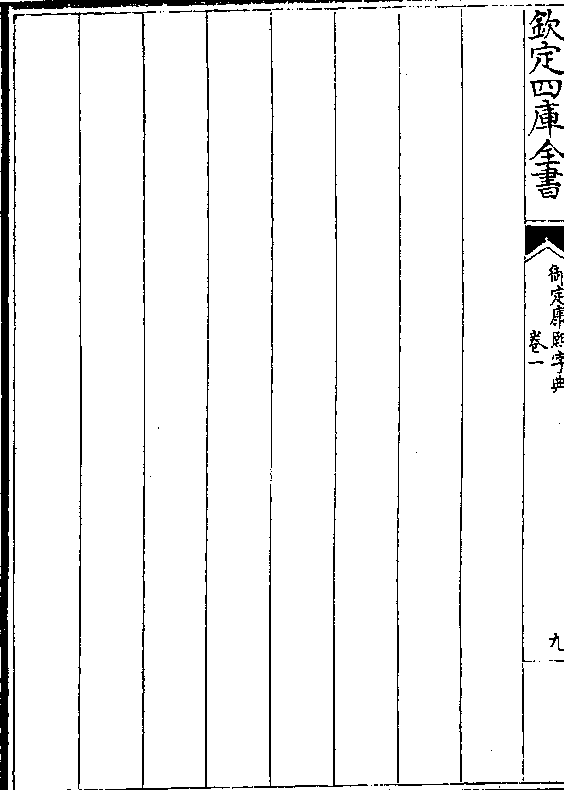 欽定四庫全書
御定康熙字典
卷一
九